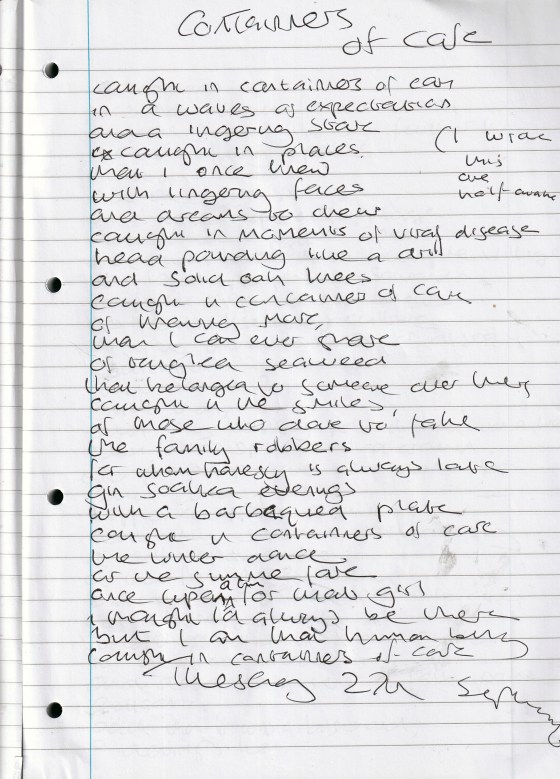 Containers
of care
caught in containers of care
in a waves of expectation
and a lingering stare
caught in places
that I once knew
with lingering faces
and dreams to chew
caught in moments of viral disease
head pounding like a drill
and solid oak knees
caught in containers of care
of knowing more,
than I can ever share
of tangled seaweed
that belonged to someone over there
caught in the smiles,
of those who dare to fake
the family robbers
for whom honesty is always late
gin soaked evenings
with a barbequed plate
caught in containers of care
the winter dance,
or the summer
once upon a time for that girl
I thought I'd always be there
but I am that human being
caught in containers of care
Tuesday 27th
(I wrote
this
half-awake